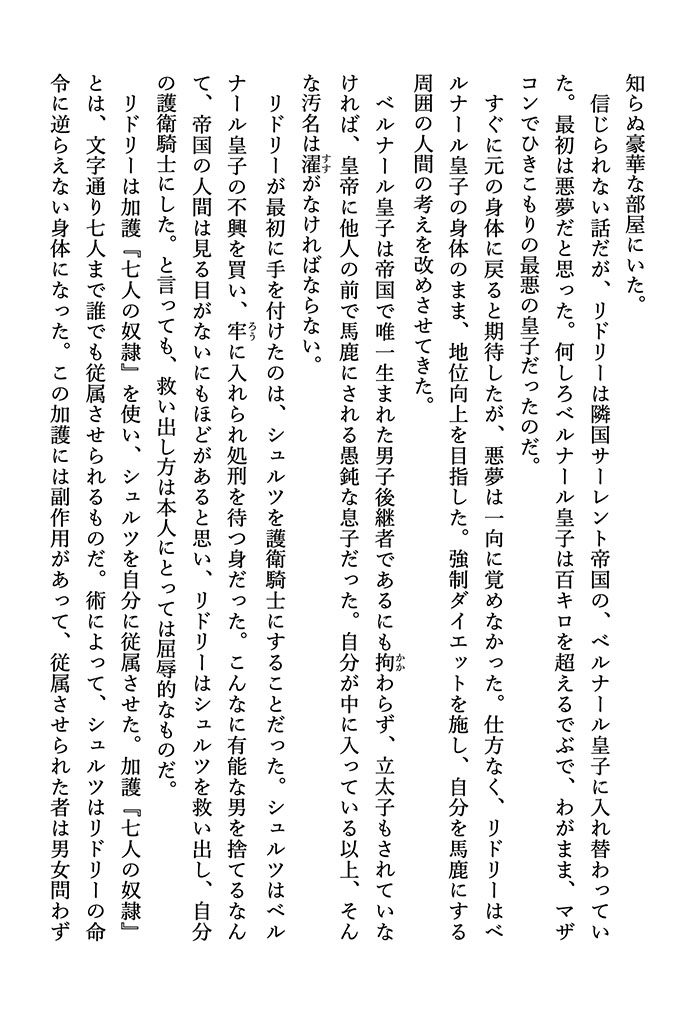 知らぬ豪華な部屋にいた。
　信じられない話だが、リドリーは隣国サーレント帝国の、ベルナール皇子に入れ替わってい
た。最初は悪夢だと思った。何しろベルナール皇子は百キロを超えるでぶで、わがまま、マザ
コンでひきこもりの最悪の皇子だったのだ。
　すぐに元の身体に戻ると期待したが、悪夢は一向に覚めなかった。仕方なく、リドリーはベ
ルナール皇子の身体のまま、地位向上を目指した。強制ダイエットを施し、自分を馬鹿にする
周囲の人間の考えを改めさせてきた。
　ベルナール皇子は帝国で唯一生まれた男子後継者であるにも拘わらず、立太子もされていな
ければ、皇帝に他人の前で馬鹿にされる愚鈍な息子だった。自分が中に入っている以上、そん
な汚名は濯がなければならない。
　リドリーが最初に手を付けたのは、シュルツを護衛騎士にすることだった。シュルツはベル
ナール皇子の不興を買い、牢に入れられ処刑を待つ身だった。こんなに有能な男を捨てるなん
て、帝国の人間は見る目がないにもほどがあると思い、リドリーはシュルツを救い出し、自分
の護衛騎士にした。と言っても、救い出し方は本人にとっては屈辱的なものだ。
　リドリーは加護『七人の奴隷』を使い、シュルツを自分に従属させた。加護『七人の奴隷』
とは、文字通り七人まで誰でも従属させられるものだ。術によって、シュルツはリドリーの命
令に逆らえない身体になった。この加護には副作用があって、従属させられた者は男女問わず